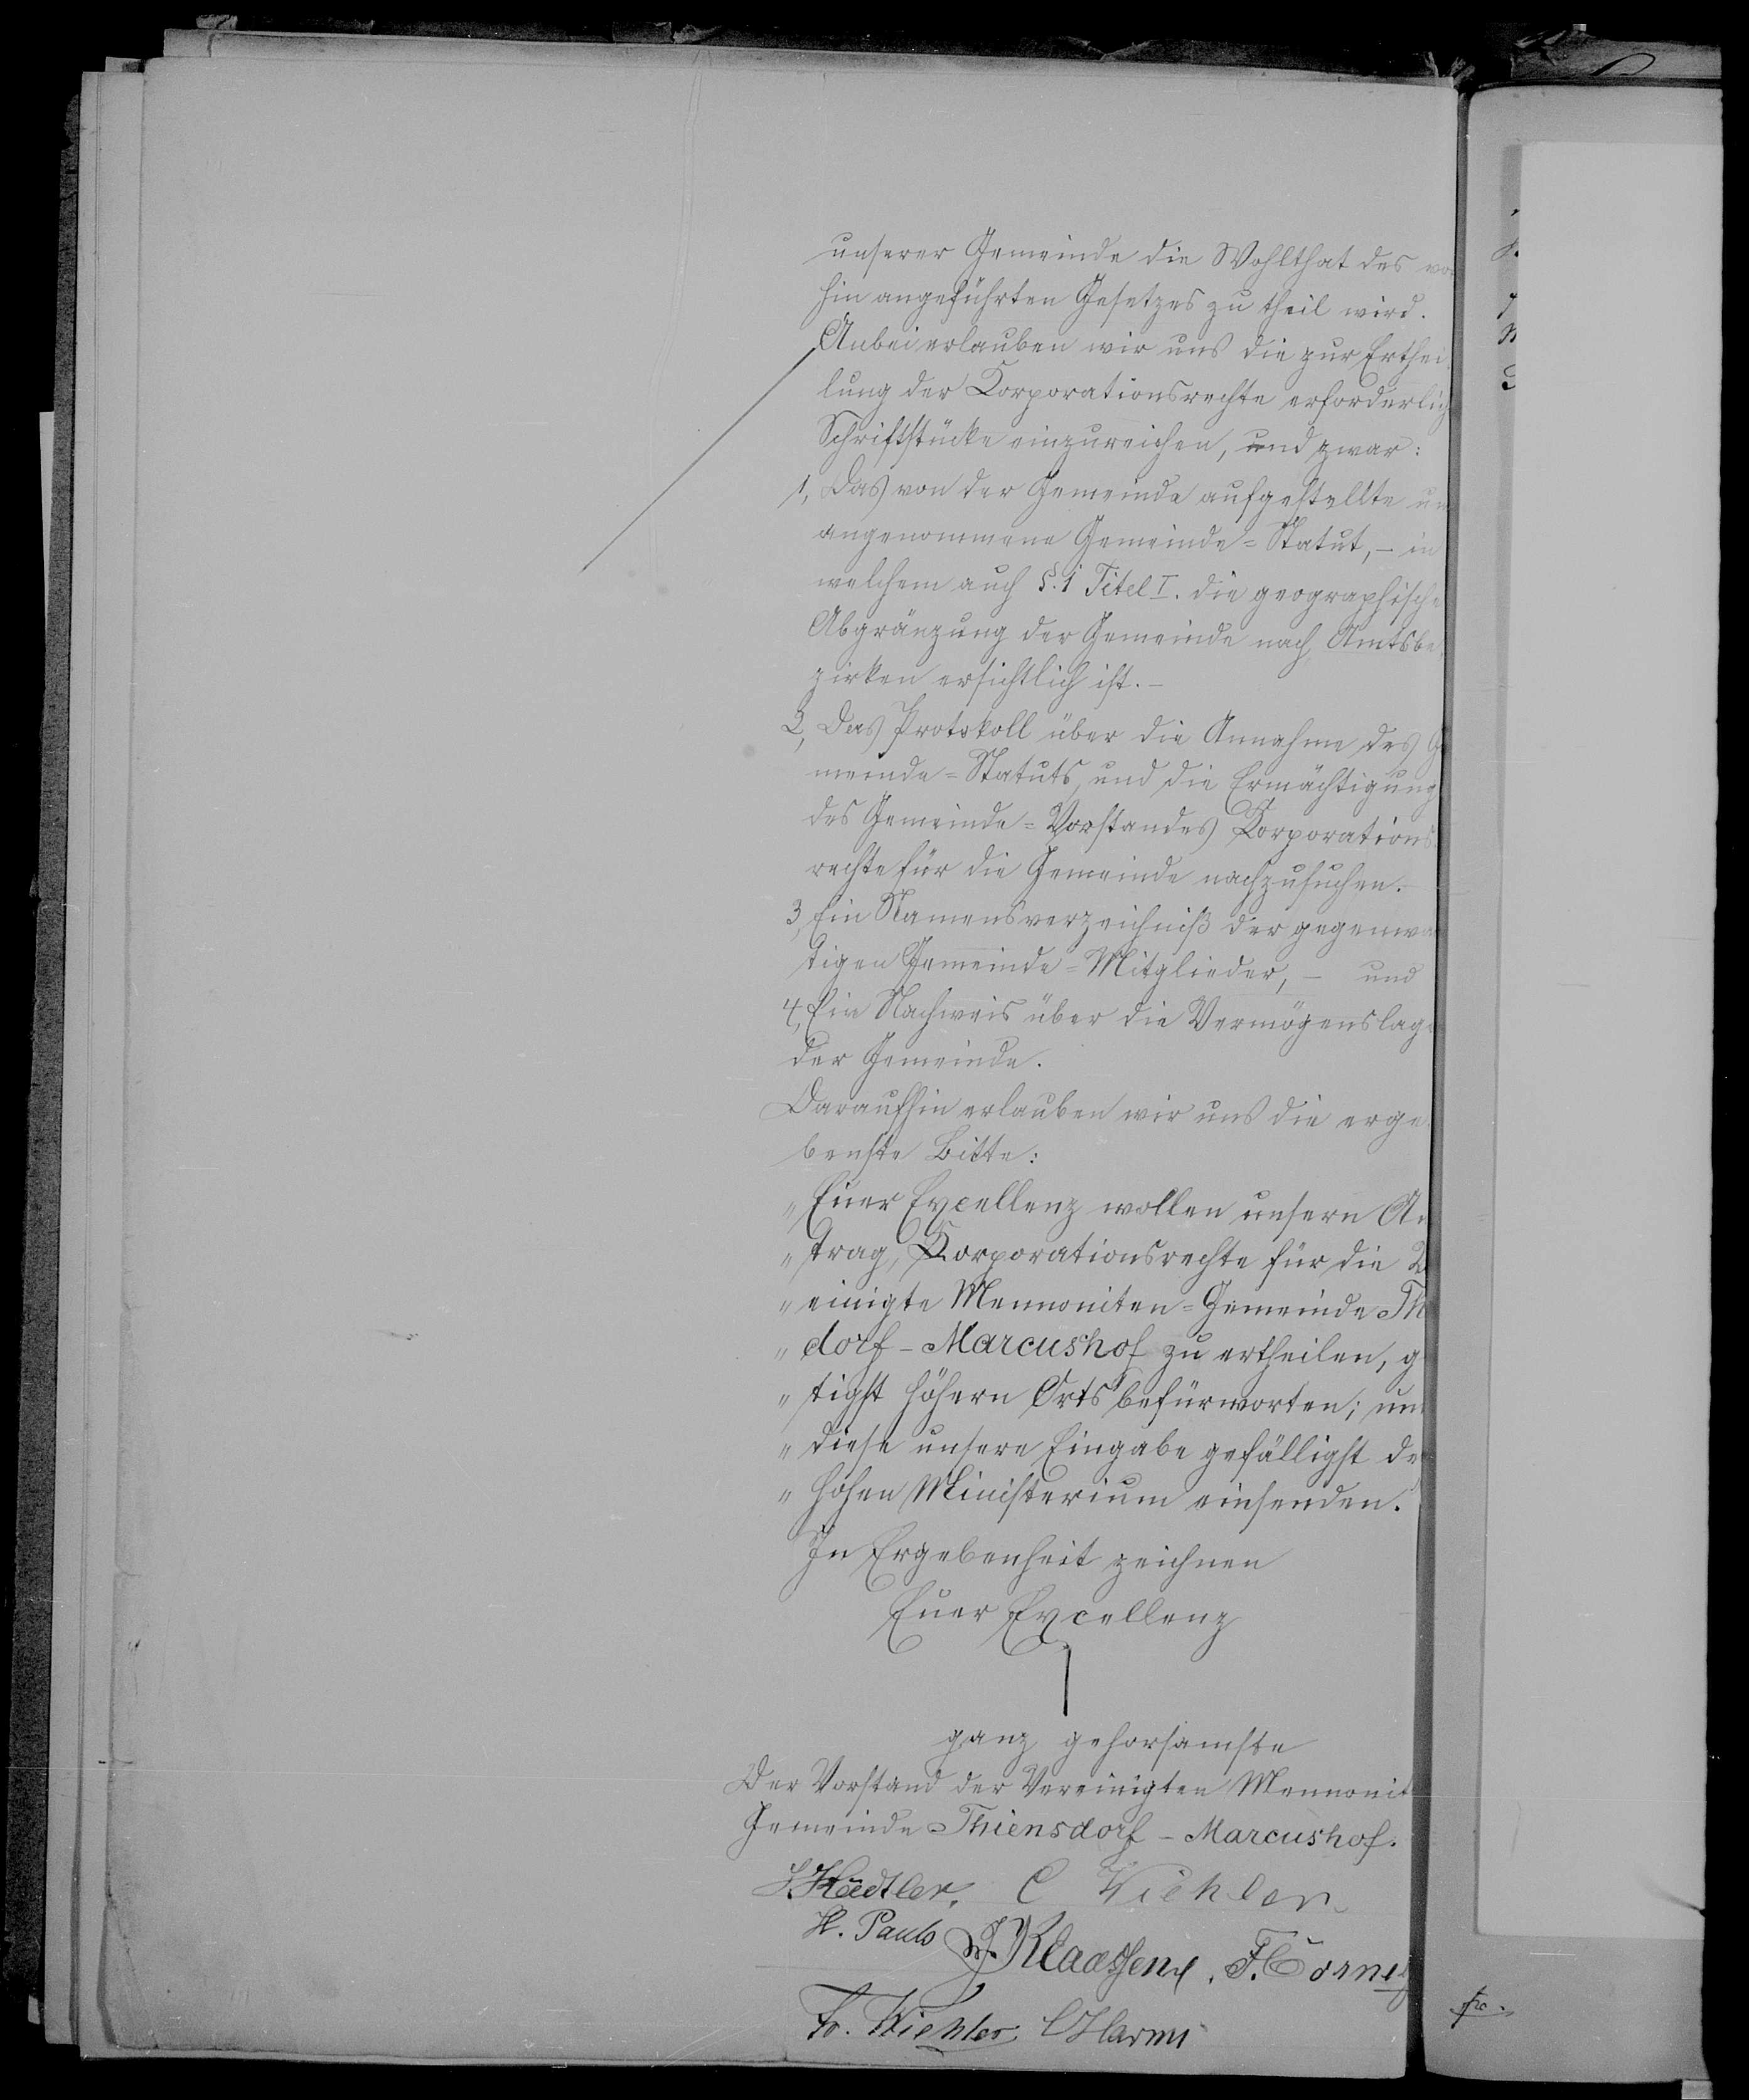 unserer Gemeinde die Wohlthat des vo
hin angeführten Gesetzes zu theil wird.
Anbei erlauben wir uns die zur Erthei
lung der Korporationsrechte erforderlich
Schriftstücke einzureichen, und zwar:
1, Das von der Gemeinde aufgestellte un
angenommene Gemeinde=Statut, – in
welchem auch §. 1 Titel I. die geographische
Abgränzung der Gemeinde nach Amtsbe
zirken ersichtlich ist. –
2, Das Protokoll über die Annahme des G
meinde=Statuts, und die Ermächtigung
des Gemeinde=Vorstandes Korporations
rechte für die Gemeinde nachzusuchen. –
3, Ein Namensverzeichniß der gegenwa
tigen Gemeinde=Mitglieder, – und
4, Ein Nachweis über die Vermögenslage
der Gemeinde.
Daraufhin erlauben wir uns die erge
benste Bitte:
„ Euer Excellenz wollen unsern An
„ trag, Korporationsrechte für die V
„ einigte Mennoniten=Gemeinde Th
„ dorf – Marcushof zu ertheilen, g
„ tigst höhern Orts befürworten; und
„ diese unsere Eingabe gefälligst de
„ hohen Ministerium einsenden.
In Ergebenheit zeichnen
Euer Excellenz
ganz gehorsamste
Der Vorstand der Vereinigten Mennonit
Gemeinde Thiensdorf – Marcushof.
C Wiehler
H. Pauls J. Klaassen F. Cornels
Fr. Wiehler C Harms